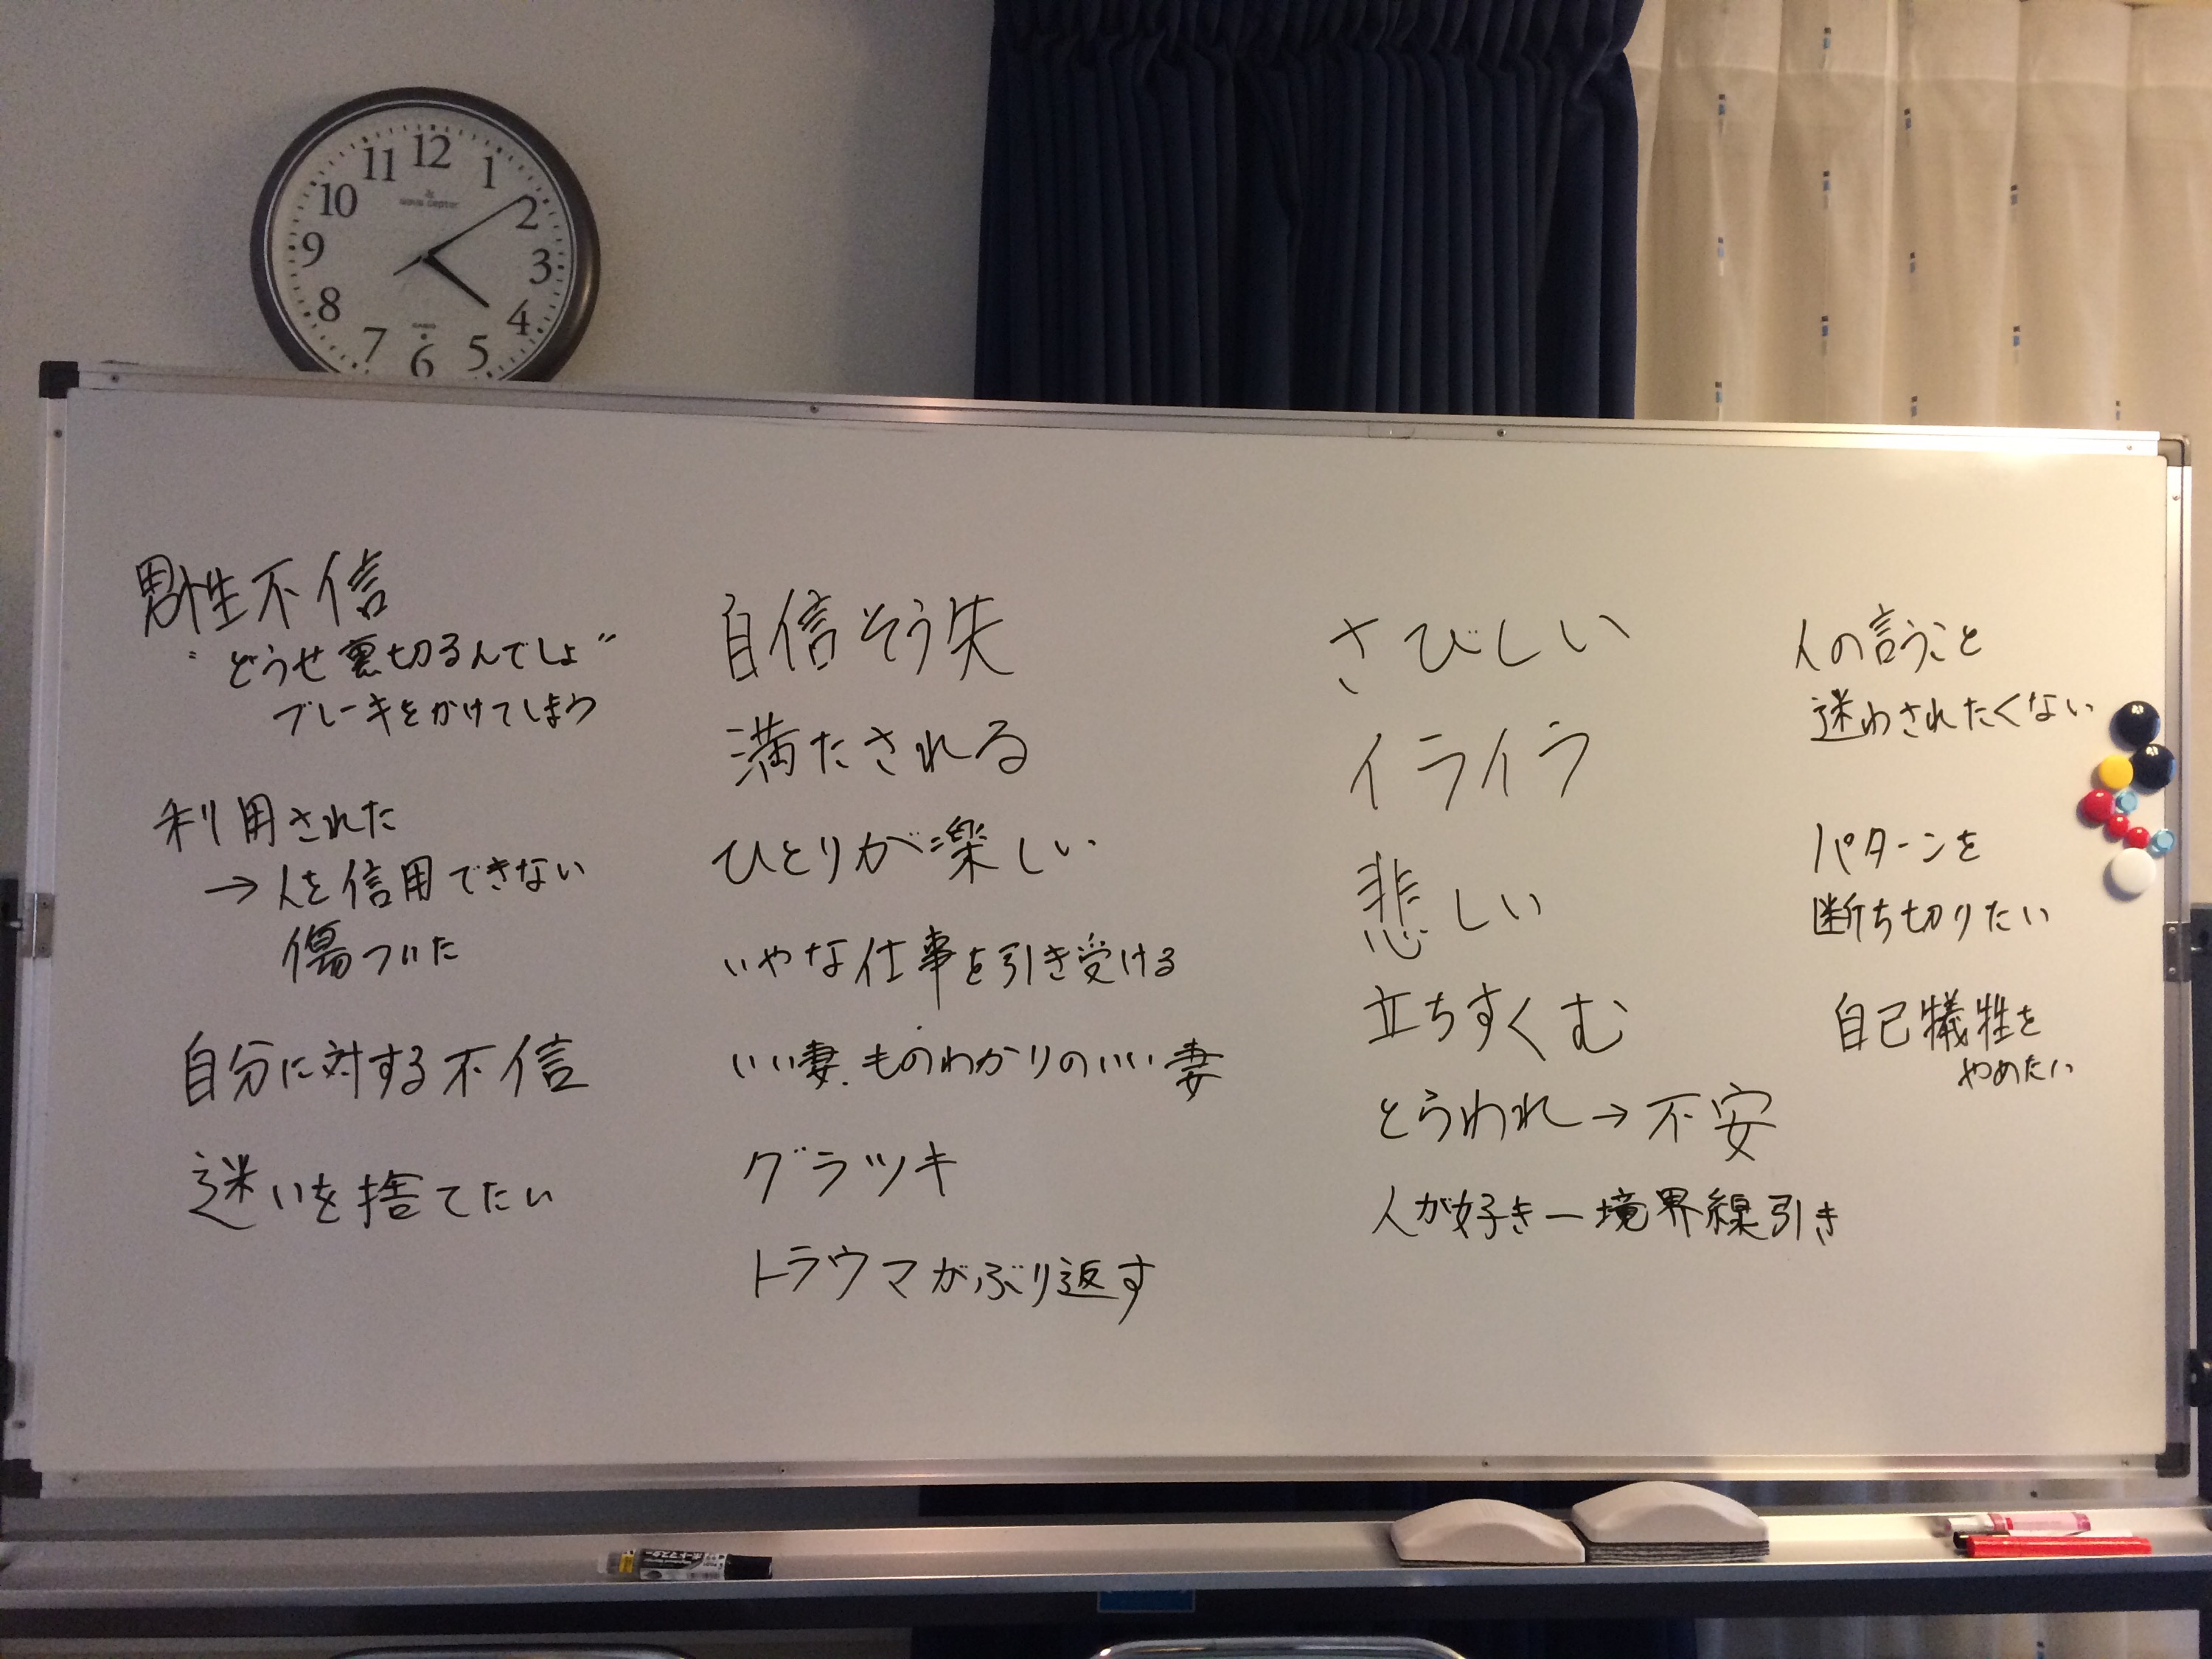 11 12 1
10 2
9 3
8 4
7 6 5
wave ceptor
CASIO
男性不信
"どうせ裏切るんでしょ"
ブレーキをかけてしまう
利用された
→人を信用できない
傷ついた
自分に対する不信
迷いを捨てたい
自信そう失
満たされる
ひとりが楽しい
いやな仕事を引き受ける
いい妻、ものわかりのいい妻
グラツキ
トラウマがぶり返す
さびしい
イライラ
悲しい
立ちすくむ
とらわれ→不安
人が好きー境界線引き
人の言うこと
迷わされたくない
パターンを
断ち切りたい
自己犠牲を
やめたい
ボードマスター